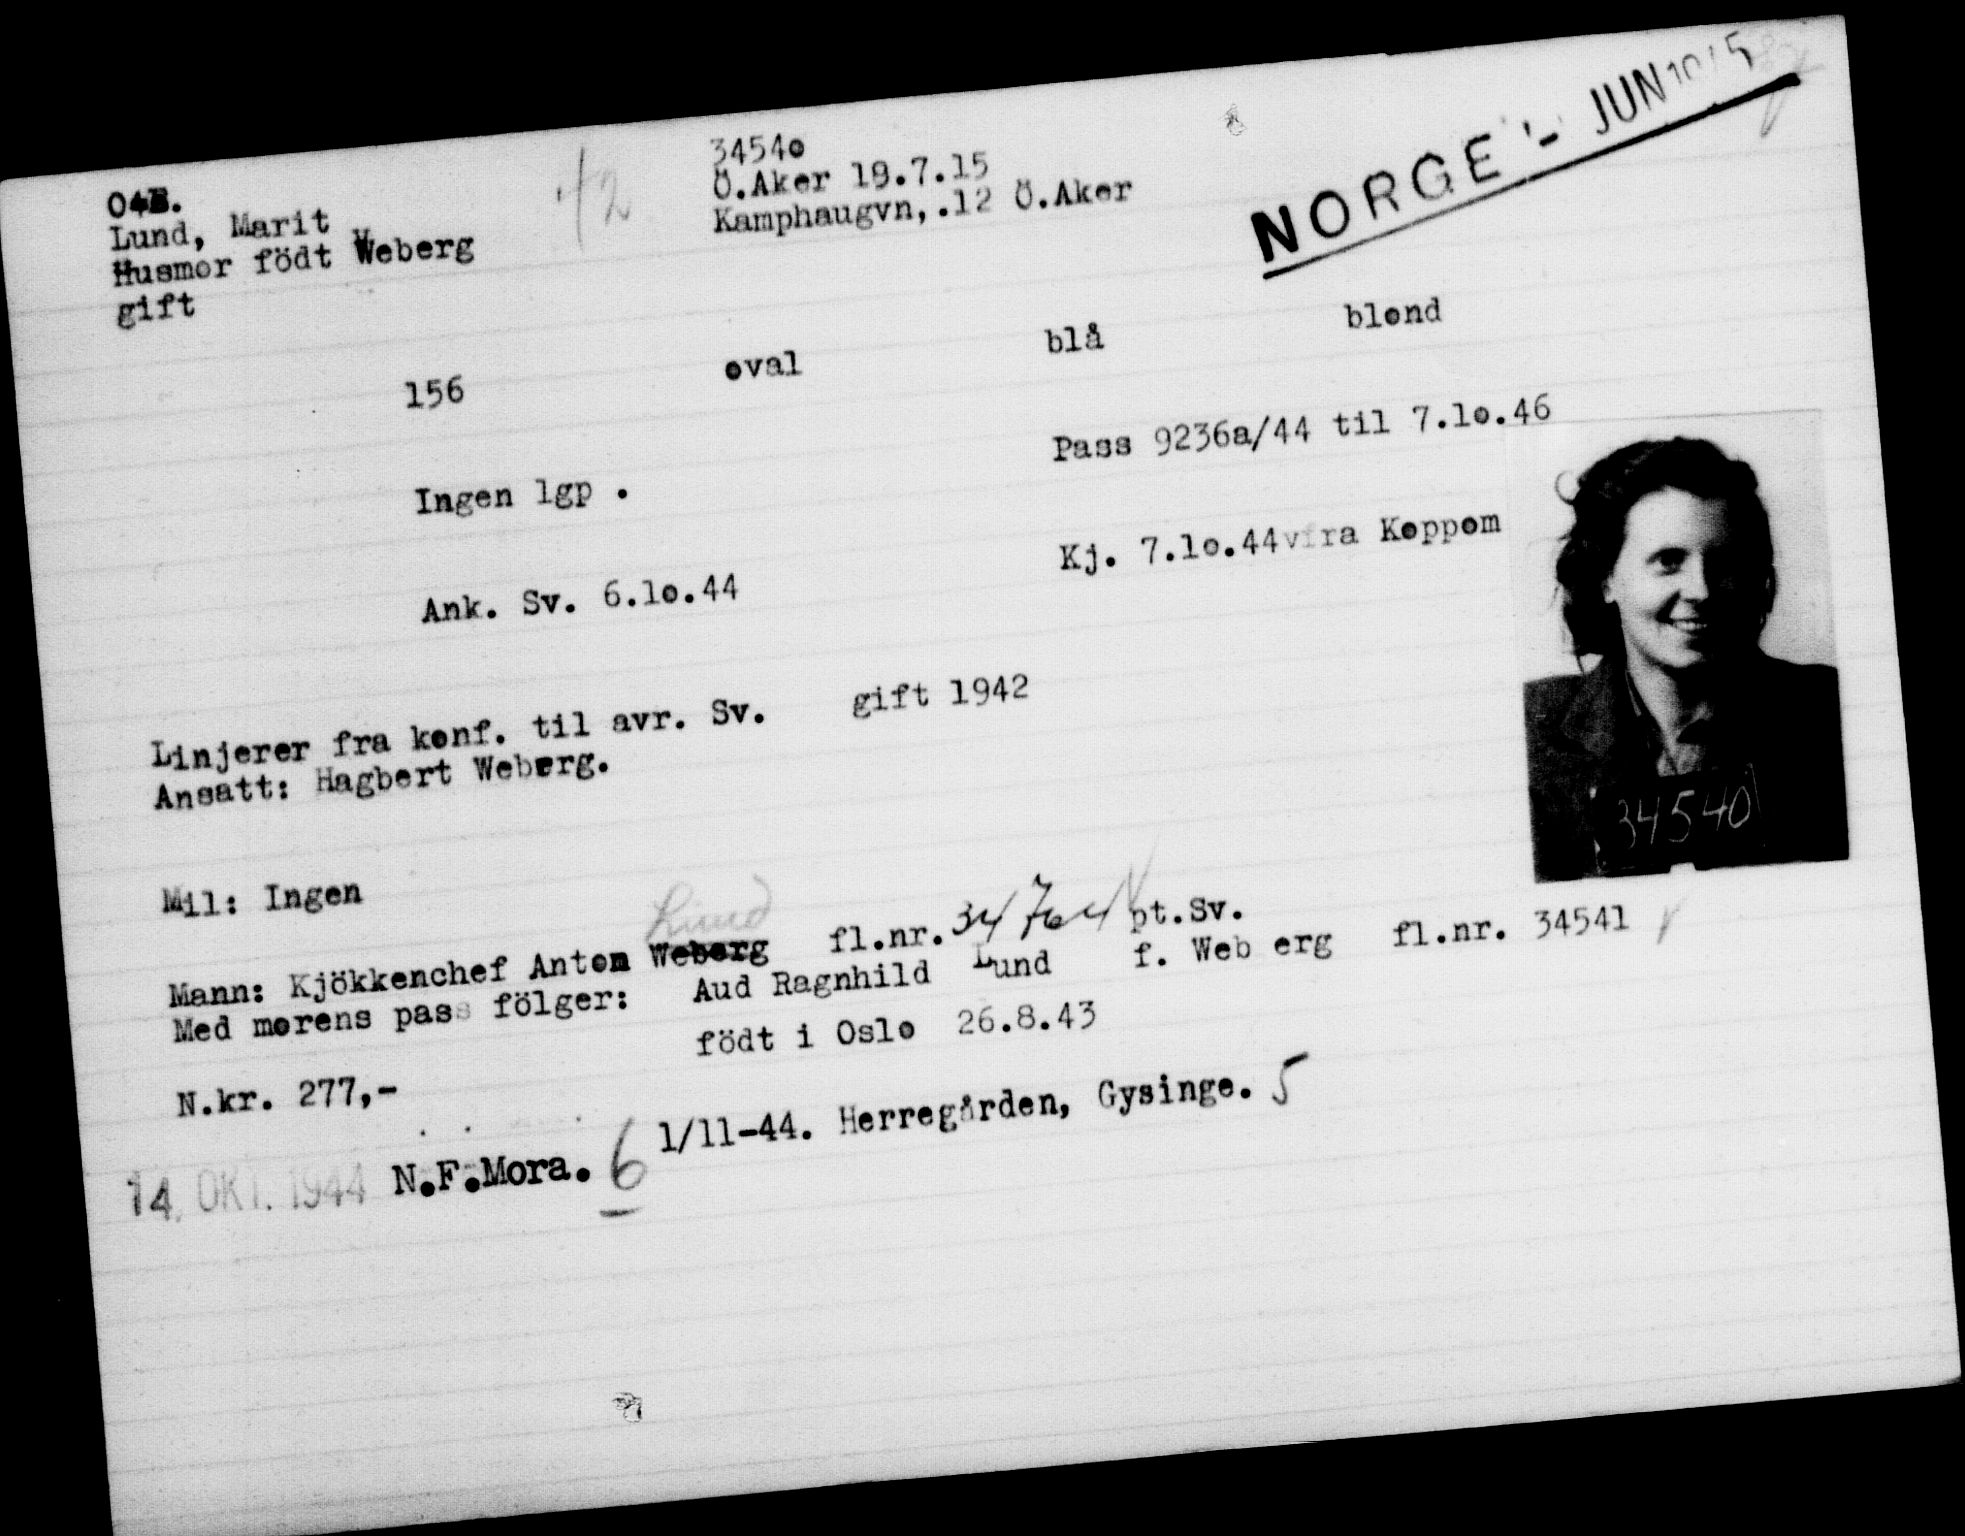 3454o
O4B.
Ö.Aker 19.7.15
Lund, Marit
Kamphaugvn,.12 Ö.Aker
Husmor födt Weberg
gift
NORGE - JUN
42
156 oval blå blond
Pass 9236a/44 til 7.1o.46
Ingen lgp .
Kj. 7.1o.44 fra Koppom
Ank. Sv. 6.1o.44
Linjerer fra konf. til avr. Sv. gift 1942
Ansatt: Hagbert Weberg.
34540
Mil: Ingen
Lund
Mann: Kjökkenchef Anton Weberg fl.nr. pt.Sv.
Med morens pass fölger: Aud Ragnhild Lund f. Web erg fl.nr. 34541
födt i Oslo 26.8.43
N.kr. 277,-
14. OKT. 1944 N.F.Mora. 6 1/11-44. Herregården, Gysinge. 5